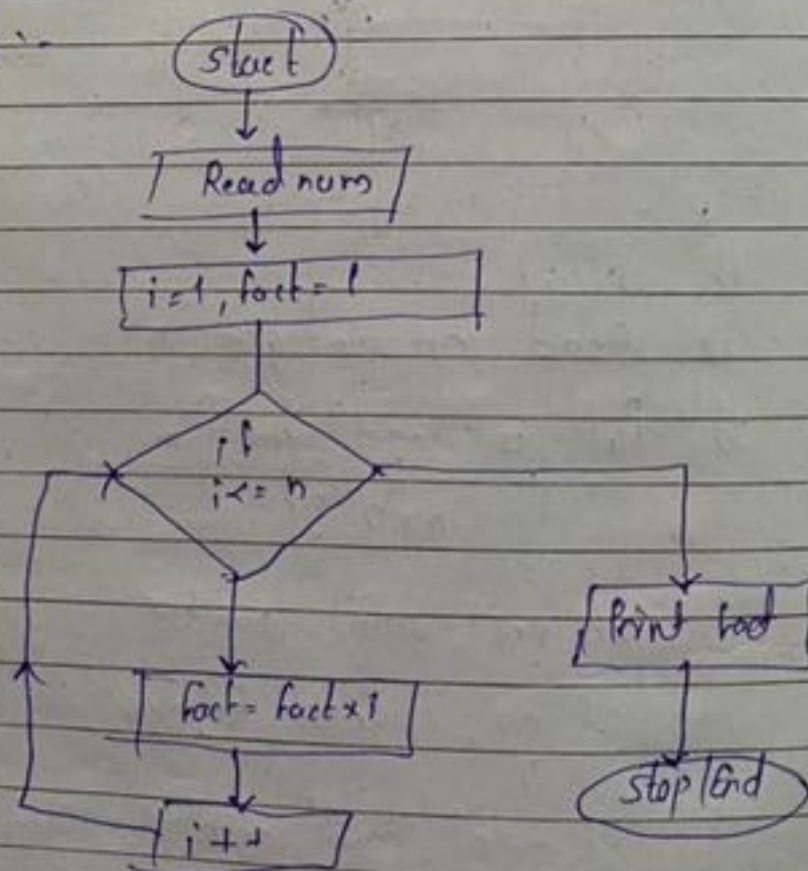 Start
Read num
i=1, fact = 1
if
i<= n
fact = fact × i
i++
Print fact
Stop/End